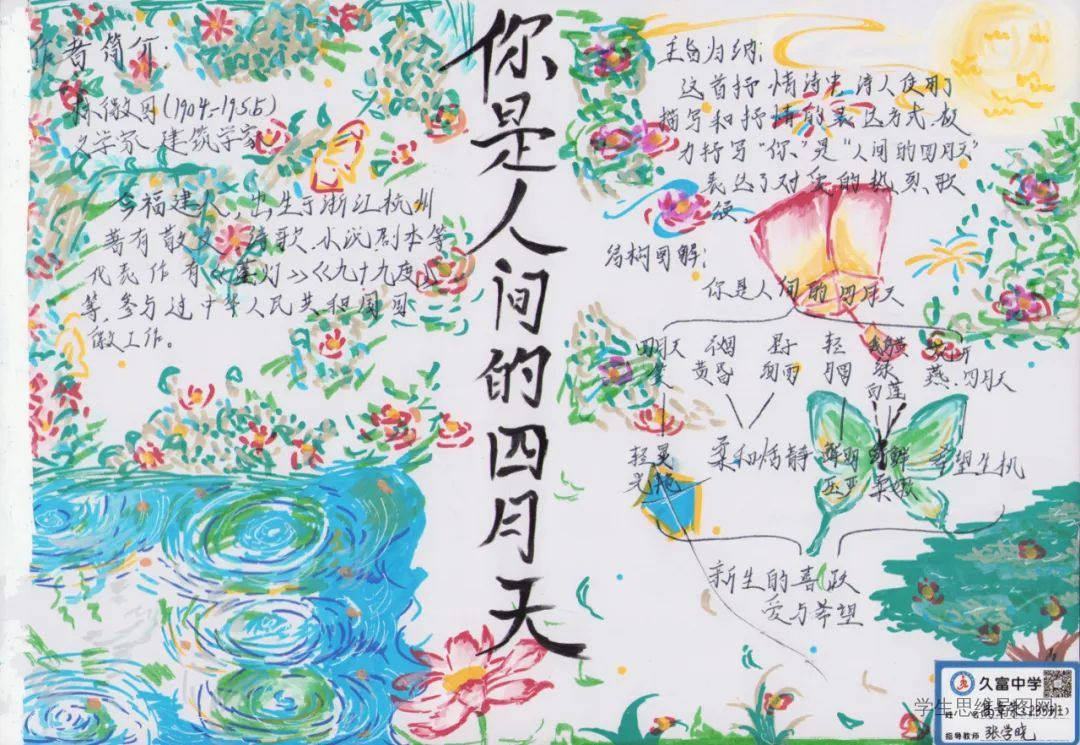 你是人间的四月天
作者简介
林徽因(1904-1955)
文学家 建筑学家
福建人,出生于浙江杭州
著有散文 诗歌 小说剧本等
代表作有《》《九十九度》
等,参与过中华人民共和国国
徽工作。
主旨归纳:
这首抒情诗中诗人使用了
描写和抒情的表达方式,极
力抒写“你”是“人间的四月天”
表达了对爱的热烈歌
颂。
结构图解:
你是人间的四月天
四月天 黄昏 星子 轻
细雨 月圆 绿 白莲 燕、四月天
轻灵 柔和恬静 鲜明 希望生机
光艳 柔嫩
新生的喜跃
爱与希望
久富中学
学生思维导图网
指导教师 张学晓